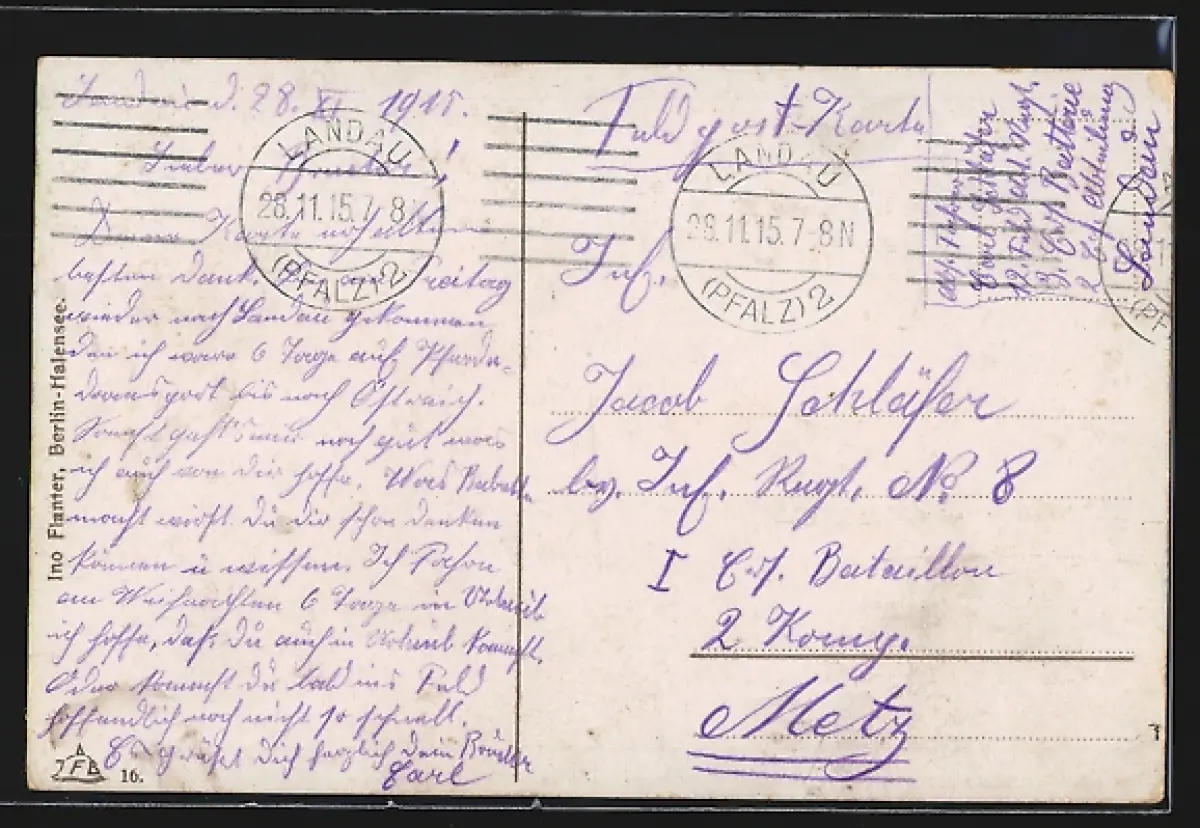 Landau d. 28. XI 1915.
Lieber Bruder!
Deine Karte erhalten
besten Dank. Freitag
wieder nach Landau gekommen,
den ich ware 6 Tage auf Pferde-
transport bis nach Östreich.
Sonst geht's mir noch gut was
ich auch von dir hoffe. Was
macht wirst Du dir schon denken
können u wissen. Ich fahre
an Weihnachten 6 Tage in Urlaub
ich hoffe, daß Du auch in Urlaub kommst.
Oder kommst Du bald ins Feld
hoffendlich noch nicht so schnell.
Es grüßt dich herzlich dein Bruder
Carl
Ino Flanter, Berlin-Halensee.
16.
LANDAU
28.11.15.7-8N
(PFALZ) 2
Feldpost-Karte
LANDAU
28.11.15.7-8N
(PFALZ) 2
Schläfer
12. Feld
2. Ers. Batterie
2 Ers. Abteilung
Landau
Inf.
Jacob Schläfer
by. Inf. Regt. No. 8
I Ers. Bataillon
2 Komp.
Metz